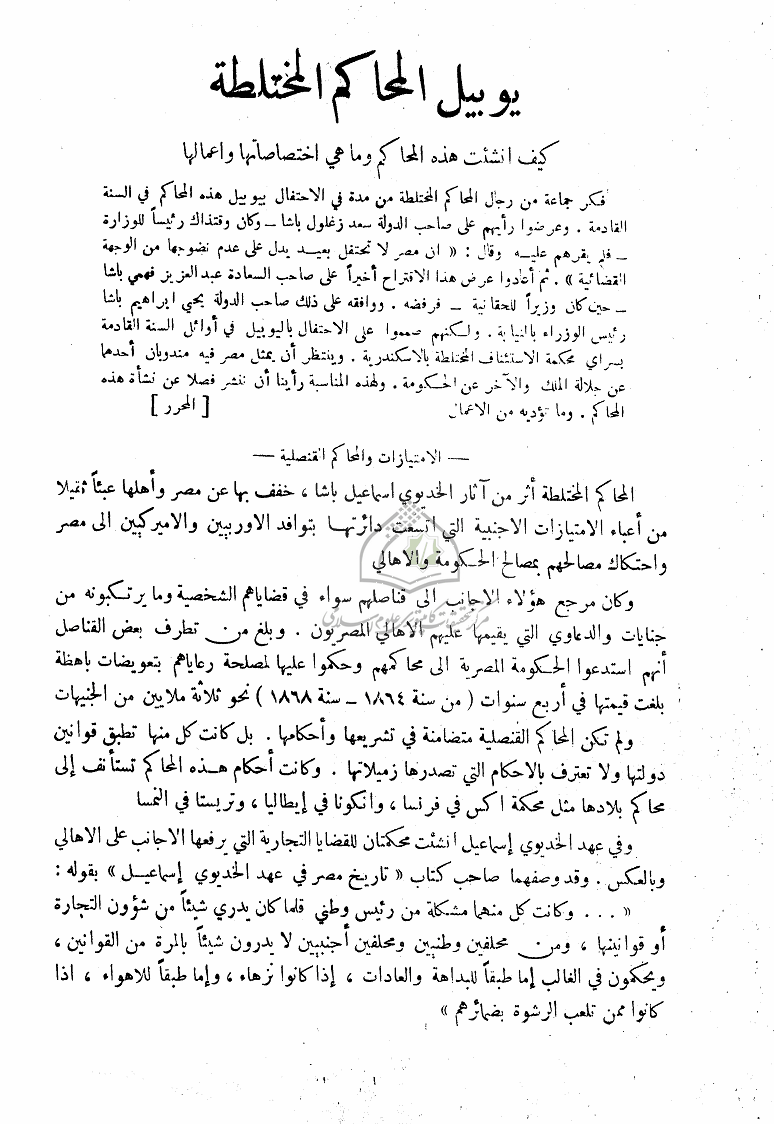 يوبيل المحاكم المختلطة
كيف انشئت هذه المحاكم وما هي اختصاصاتها واعمالها
فكر جماعة من رجال المحاكم المختلطة من مدة في الاحتفال بيوبيل هذه المحاكم في السنة
القادمة . وعرضوا رأيهم على صاحب الدولة سعد زغلول باشا — وكان وقتذاك رئيساً للوزارة
— فلم يقرهم عليه وقال : « ان مصر لا تحتفل بعيد يدل على عدم نضوجها من الوجهة
القضائية » . ثم أعادوا عرض هذا الاقتراح أخيراً على صاحب السعادة عبد العزيز فهمي باشا
— حين كان وزيراً للحقانية — فرفضه . ووافقه على ذلك صاحب الدولة يحيى ابراهيم باشا
رئيس الوزراء بالنيابة . ولكنهم صمموا على الاحتفال باليوبيل في أوائل السنة القادمة
بسراي محكمة الاستئناف المختلطة بالاسكندرية . وينتظر أن يمثل مصر فيه مندوبان أحدهما
عن جلالة الملك والآخر عن الحكومة . ولهذه المناسبة رأينا أن ننشر فصلا عن نشأة هذه
المحاكم . وما تؤديه من الاعمال [ المحرر ]
— الامتيازات والمحاكم القنصلية —
المحاكم المختلطة أثر من آثار الخديوي اسماعيل باشا ، خفف بها عن مصر وأهلها عبئاً ثقيلا
من أعباء الامتيازات الاجنبية التي اتسعت دائرتها بتوافد الاوربيين والاميركيين الى مصر
واحتكاك مصالحهم بمصالح الحكومة والاهالي
وكان مرجع هؤلاء الاجانب الى قناصلهم سواء في قضاياهم الشخصية وما يرتكبونه من
جنايات والدعاوي التي يقيمها عليهم الاهالي المصريون . وبلغ من تطرف بعض القناصل
أنهم استدعوا الحكومة المصرية الى محاكمهم وحكموا عليها لمصلحة رعاياهم بتعويضات باهظة
بلغت قيمتها في أربع سنوات ( من سنة ١٨٦٤ — سنة ١٨٦٨ ) نحو ثلاثة ملايين من الجنيهات
ولم تكن المحاكم القنصلية متضامنة في تشريعها وأحكامها . بل كانت كل منها تطبق قوانين
دولتها ولا تعترف بالاحكام التي تصدرها زميلاتها . وكانت أحكام هذه المحاكم تستأنف إلى
محاكم بلادها مثل محكمة اكس في فرنسا ، وانكونا في إيطاليا ، وتريستا في النمسا
وفي عهد الخديوي إسماعيل انشئت محكمتان للقضايا التجارية التي يرفعها الاجانب على الاهالي
وبالعكس . وقد وصفهما صاحب كتاب « تاريخ مصر في عهد الخديوي إسماعيل » بقوله :
« ... وكانت كل منهما مشكلة من رئيس وطني قلما كان يدري شيئاً من شؤون التجارة
أو قوانينها ، ومن محلفين وطنيين ومحلفين أجنبيين لا يدرون شيئاً بالمرة من القوانين ،
ويحكمون في الغالب إما طبقاً للبداهة والعادات ، إذا كانوا نزهاء ، وإما طبقاً للاهواء ، اذا
كانوا ممن تلعب الرشوة بضمائرهم »